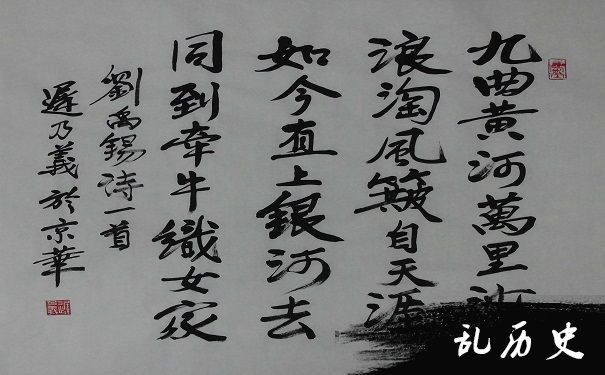 九曲黄河萬里沙
浪淘風簸自天涯
如今直上銀河去
同到牽牛織女家
劉禹錫诗一首
遲乃義於京華
乱历史